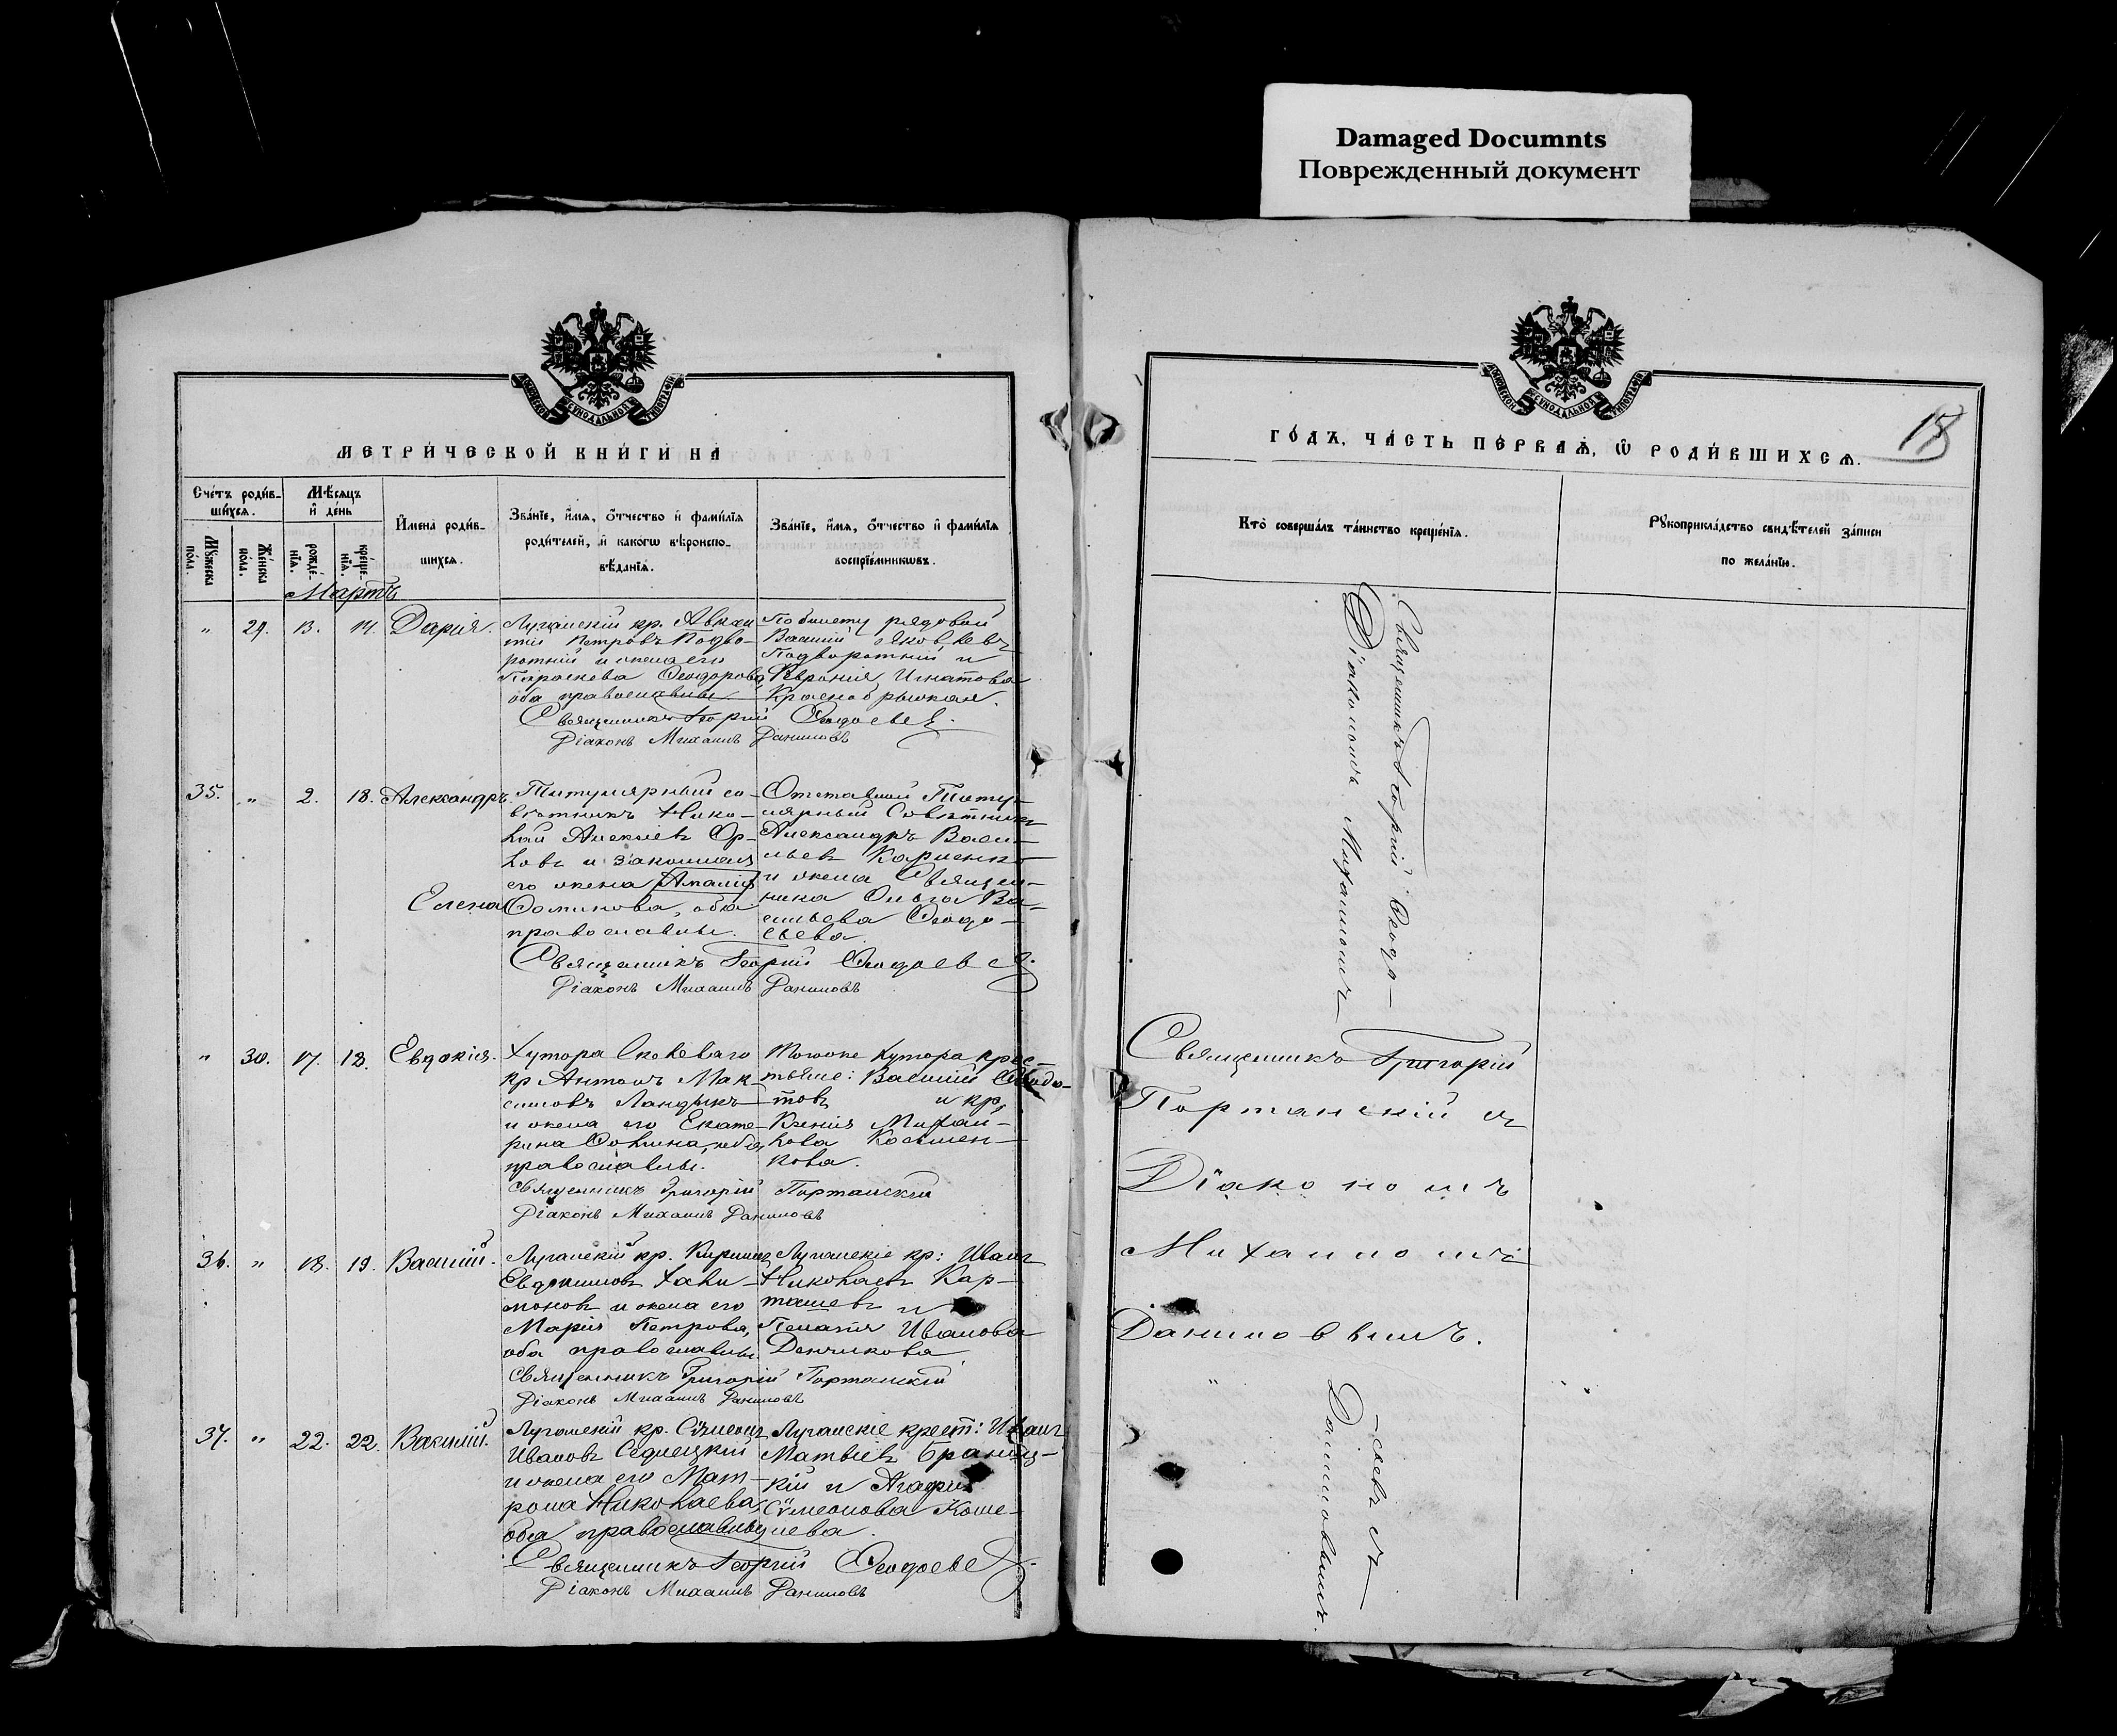 Damaged Documnts
Поврежденный документ
МЕТРИЧЕСКОЙ КНИГИ НА
Счетъ родив-
шихся.
Мѣсяцъ
и день
Имена родив-
шихся.
Званіе, имя, отчество и фамилія
родителей, и какогѡ вѣроиспо-
вѣданія.
Званіе, имя, отчество и фамилія
воспріемникѡвъ.
Мужеска
пола.
Женска
пола.
рожде-
нія.
креще-
нія.
Мартъ
" 29. 13. 14. Дарія.
Луганскій кр. Авкси
тій Петровъ Подво-
ротній и жена его
Параскева Ѳеодорова
оба православные.
По билету рядовой
Василій Яковлевъ
Подворотній и
Февронія Игнатова
Краснобрыжая.
Священникъ Георгій Ѳеодосьевъ.
Діаконъ Михаилъ Даниловъ
35. " 2. 18. Александръ.
Титулярный со-
вѣтникъ Нико-
лай Алексіевъ Ор-
ловъ и законная
его жена Амалія
Елена
православные.
Отставной Титу-
лярный Совѣтникъ
Александръ Васи-
льевъ
и жена Священ-
ника Ольга Ва-
сильева Ѳеодо-
сьева.
Священникъ Георгій Ѳеодосьевъ.
Діаконъ Михаилъ Даниловъ
" 30. 17. 18. Евдокія.
Хутора
кр Антонъ Мак-
симовъ Ландыкъ
и жена его Екате-
рина Савина, оба
православные.
Тогоже хутора крес-
тьяне: Василій
товъ и кр.
Ксенія Михай-
лова
кова.
Священникъ Григорій Портанскій
Діаконъ Михаилъ Даниловъ
36. " 18. 19. Василій.
Луганскій кр. Кириллъ
Евдокимовъ Хари-
тоновъ и жена его
Марія Петрова,
оба православные.
Луганскіе кр: Иванъ
Николаевъ Кар-
ташевъ и
Пелагія Иванова
Денчикова
Священникъ Григорій Портанскій
Діаконъ Михаилъ Даниловъ
37. " 22. 22. Василій.
Луганскій кр. Сѵмеонъ
Ивановъ Седлецкій
и жена его Мат-
рона Николаева,
оба православные
Луганскіе крест: Иванъ
Матвіевъ Браниц-
кій и Агафія
Сѵмеонова Коше-
лева.
Священникъ Георгій Ѳеодосьевъ.
Діаконъ Михаилъ Даниловъ
ГОДЪ, ЧАСТЬ ПЕРВАѦ, Ѡ РОДИВШИХСѦ.
18
Кто совершалъ таинство крещенія.
Рукоприкладство свидѣтелей записи
по желанію.
Священникъ Георгій Ѳеодо-
Діакономъ Михаиломъ
Священникъ Григорій
Портанскій съ
Діакономъ
Михаиломъ
Даниловымъ.
"
-сьевъ съ
Даниловымъ.